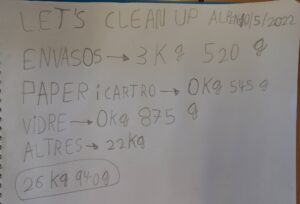 LET'S CLEAN UP 10/5/2022
ENVASOS → 3 Kg 520 g
PAPER i CARTRO → 0Kg 545 g
VIDRE → 0Kg 875 g
ALTRES → 22Kg
26 Kg 940g